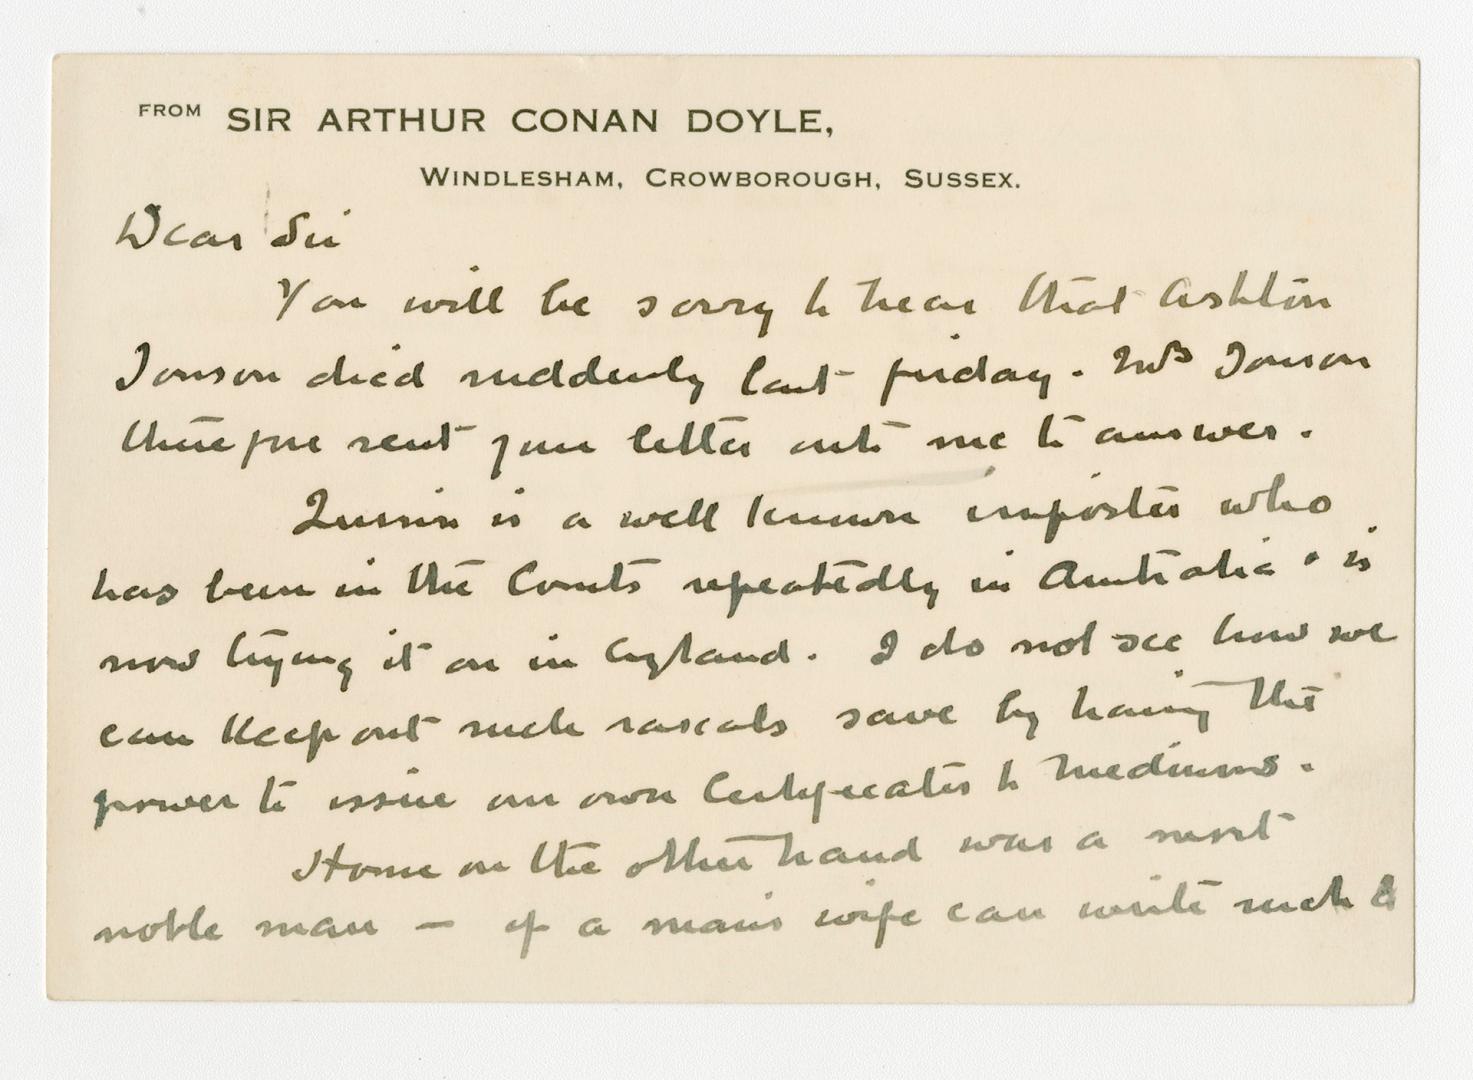 FROM SIR ARTHUR CONAN DOYLE,
WINDLESHAM, CROWBOROUGH, SUSSEX.
Dear Sir
You will be sorry to hear that Ashton
Jonson died suddenly last friday. Mrs Jonson
therefore sent your letter onto me to answer.
is a well known imposter who
has been in the Courts repeatedly in Australia & is
now trying it on in England. I do not see how we
can keep out such rascals save by having the
power to issue our own Certificates to Mediums.
Home on the other hand was a most
noble man — if a man's wife can write such a